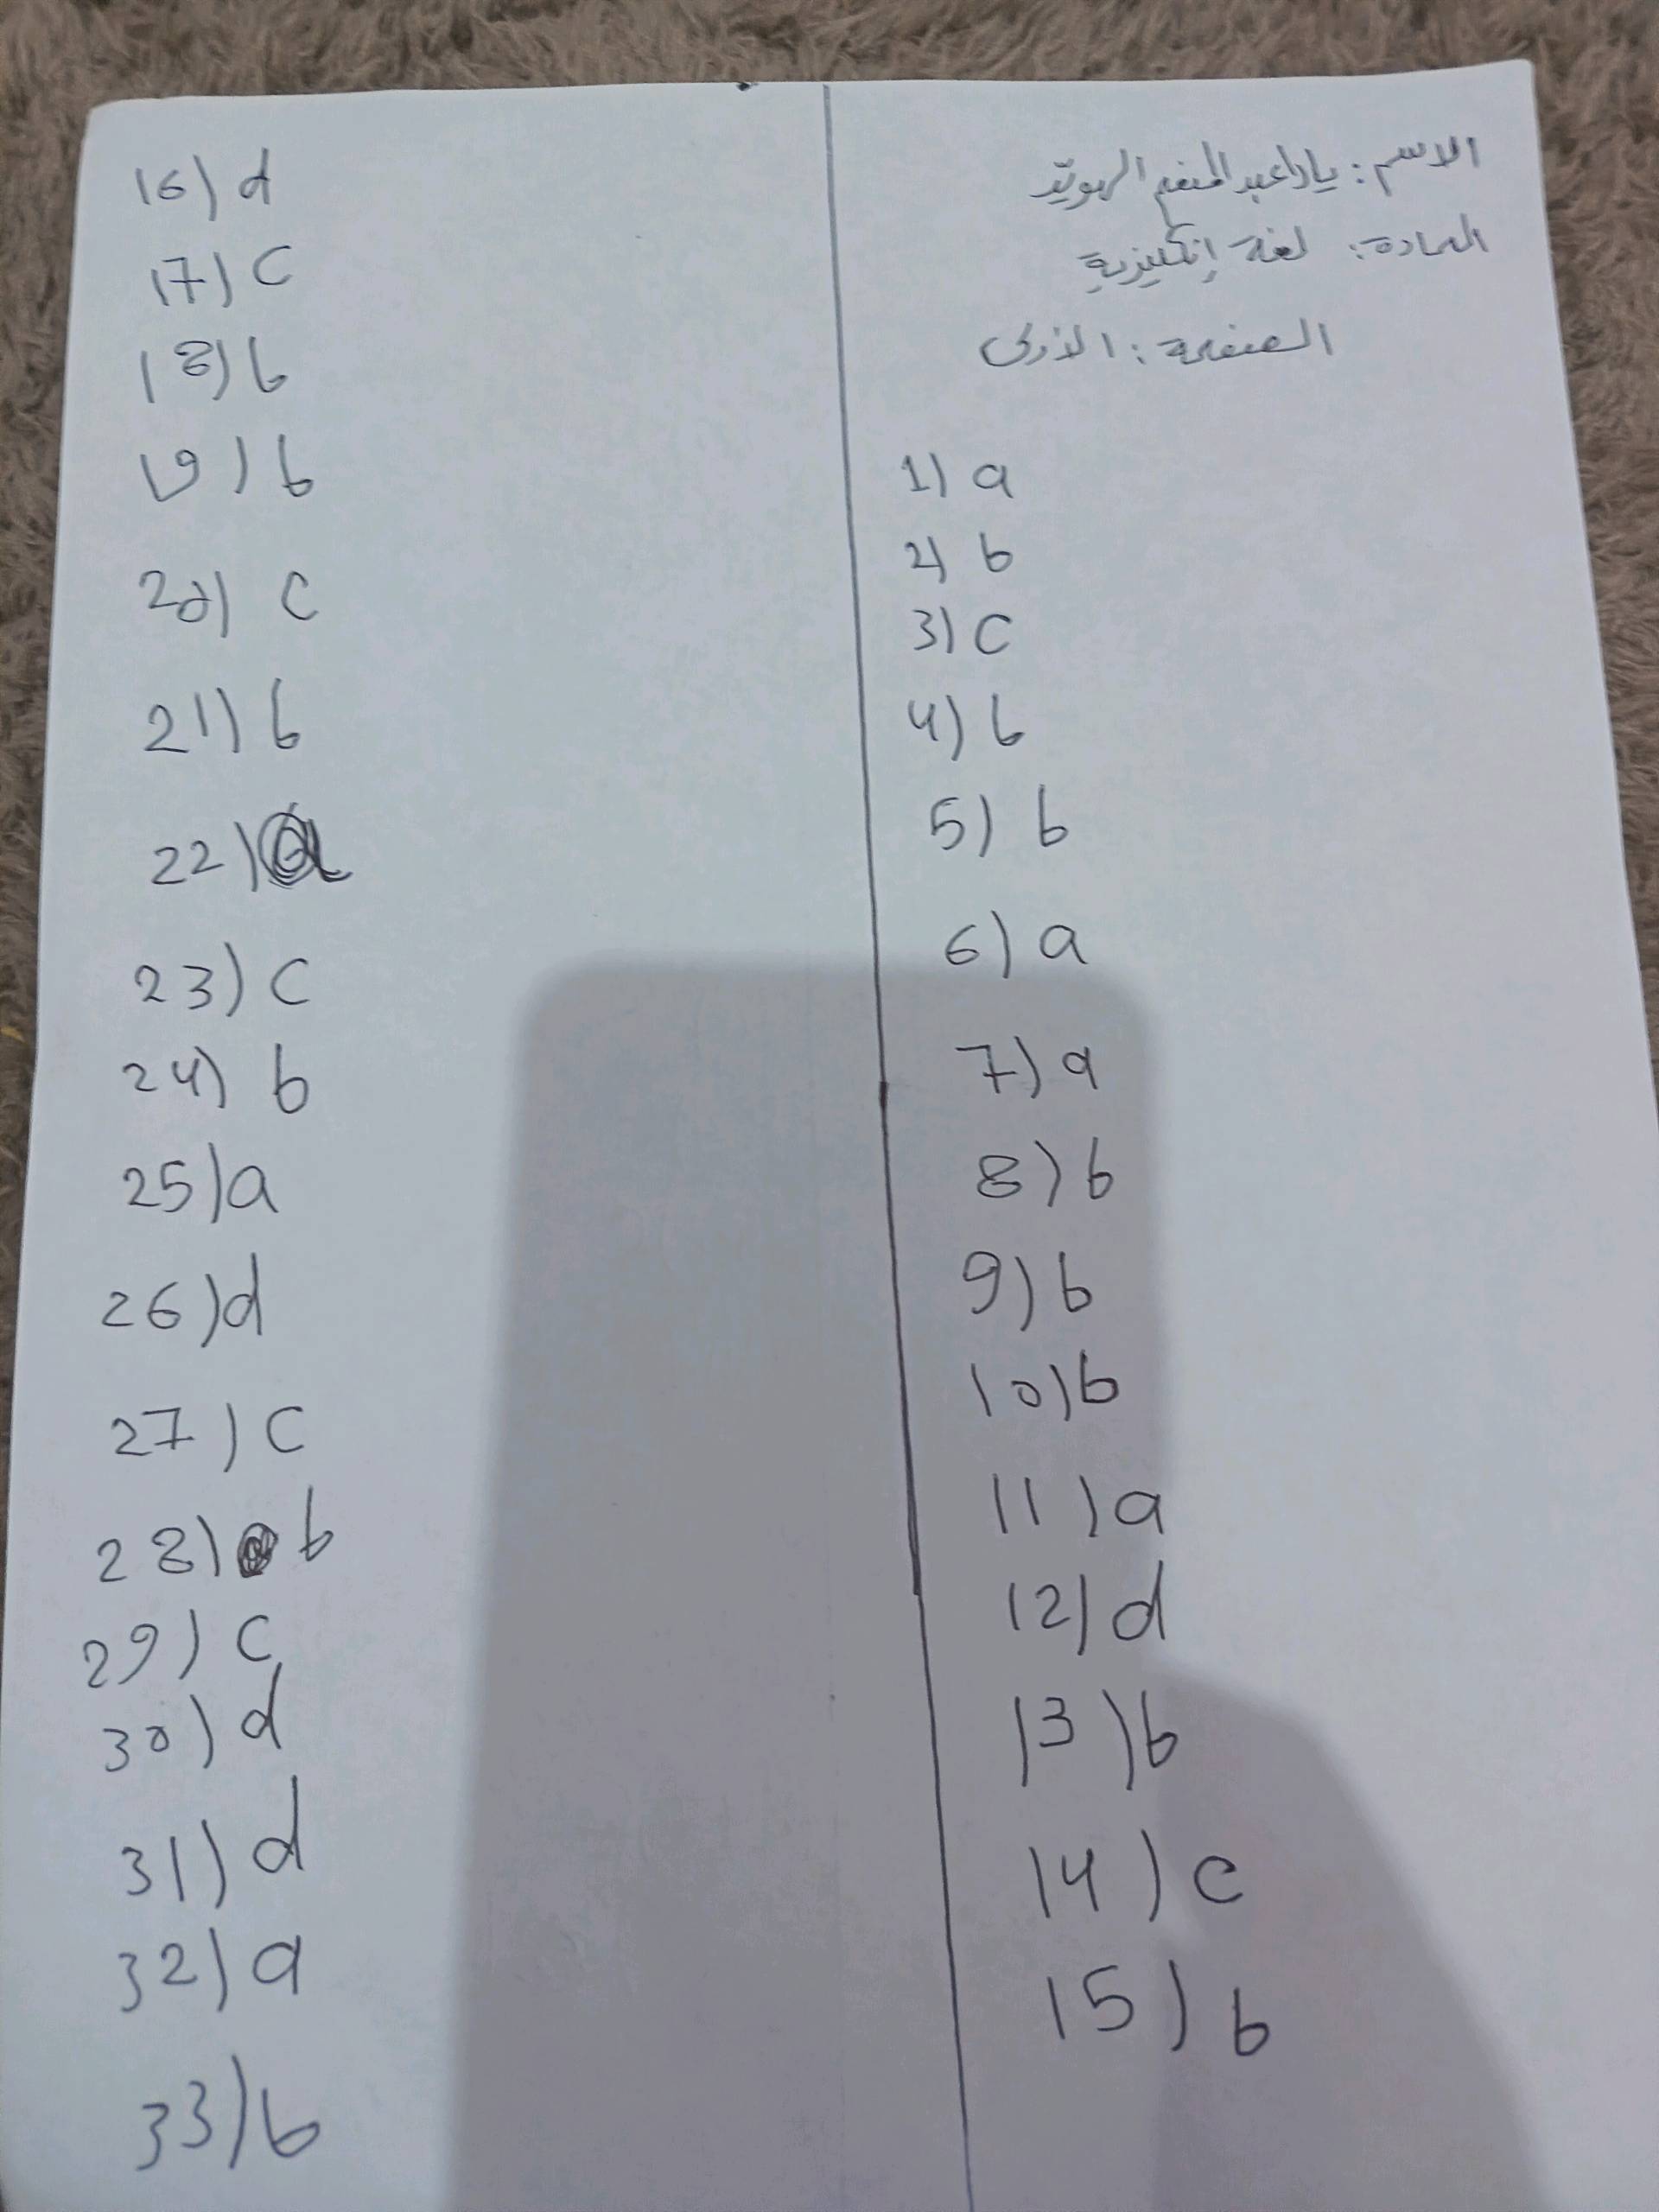 الاسم: يارا عبد المنعم الهويد
المادة: لغة إنكليزية
الصفحة: الأولى
1) a
2) b
3) c
4) b
5) b
6) a
7) a
8) b
9) b
10) b
11) a
12) d
13) b
14) c
15) b
16) d
17) c
18) b
19) b
20) c
21) b
22) a
23) c
24) b
25) a
26) d
27) c
28) b
29) c
30) d
31) d
32) a
33) b